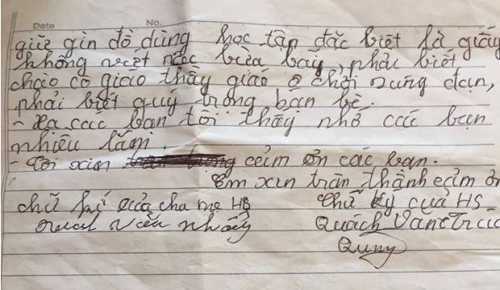 Date No.
giữ gìn đồ dùng học tập đặc biệt là giấy
không vứt rác bừa bãy, phải biết
chào cô giáo thầy giáo
phải biết quý trọng bạn bè.
- Xa các bạn tôi thấy nhớ các bạn
nhiều lắm.
- Tôi xin cảm ơn các bạn.
Em xin trân thành cảm ơn
chữ kí của cha mẹ HS Chữ ký của HS
Quách Văn
Quny